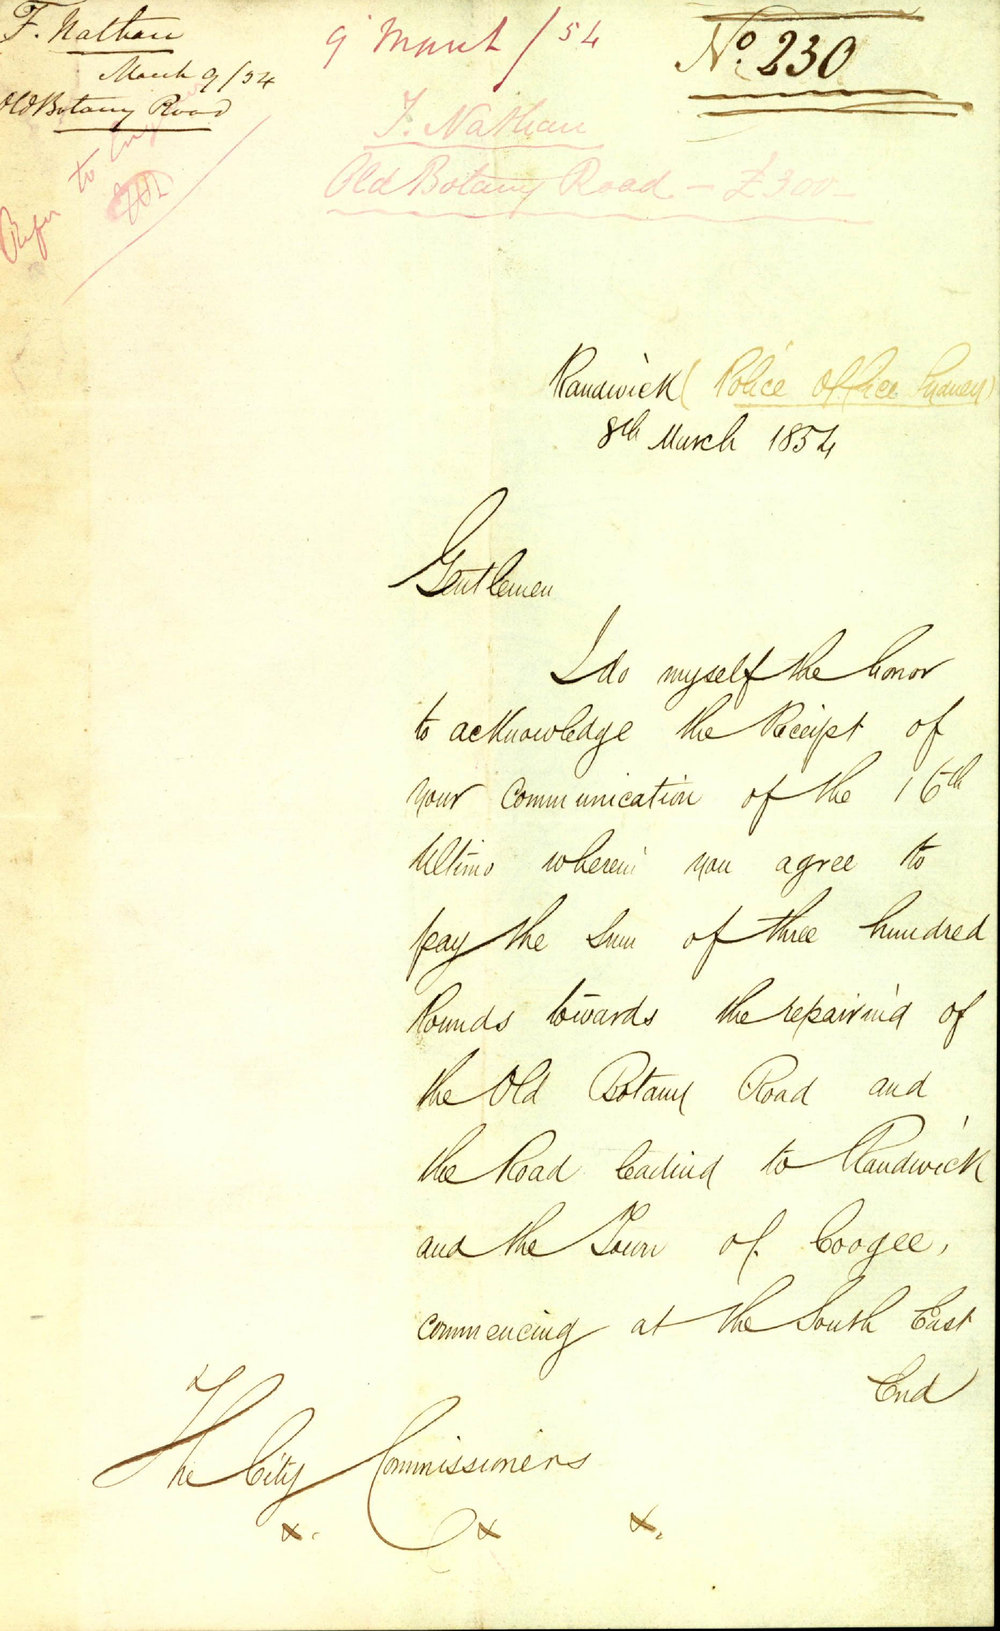 F. Nathan
March 9/54
Old Botany Road
9 March/54
No. 230
F. Nathan
Old Botany Road - £300
Refer
to
Randwick (Police Office Sydney)
8th March 1854
Gentlemen
I do myself the honor
to acknowledge the Receipt of
your Communication of the 16th
Ultimo wherein you agree to
pay the Sum of three hundred
Pounds towards the repairing of
the Old Botany Road and
the Road leading to Randwick
and the Town of Coogee,
commencing at the South East
End
The City Commissioners
x. x x.